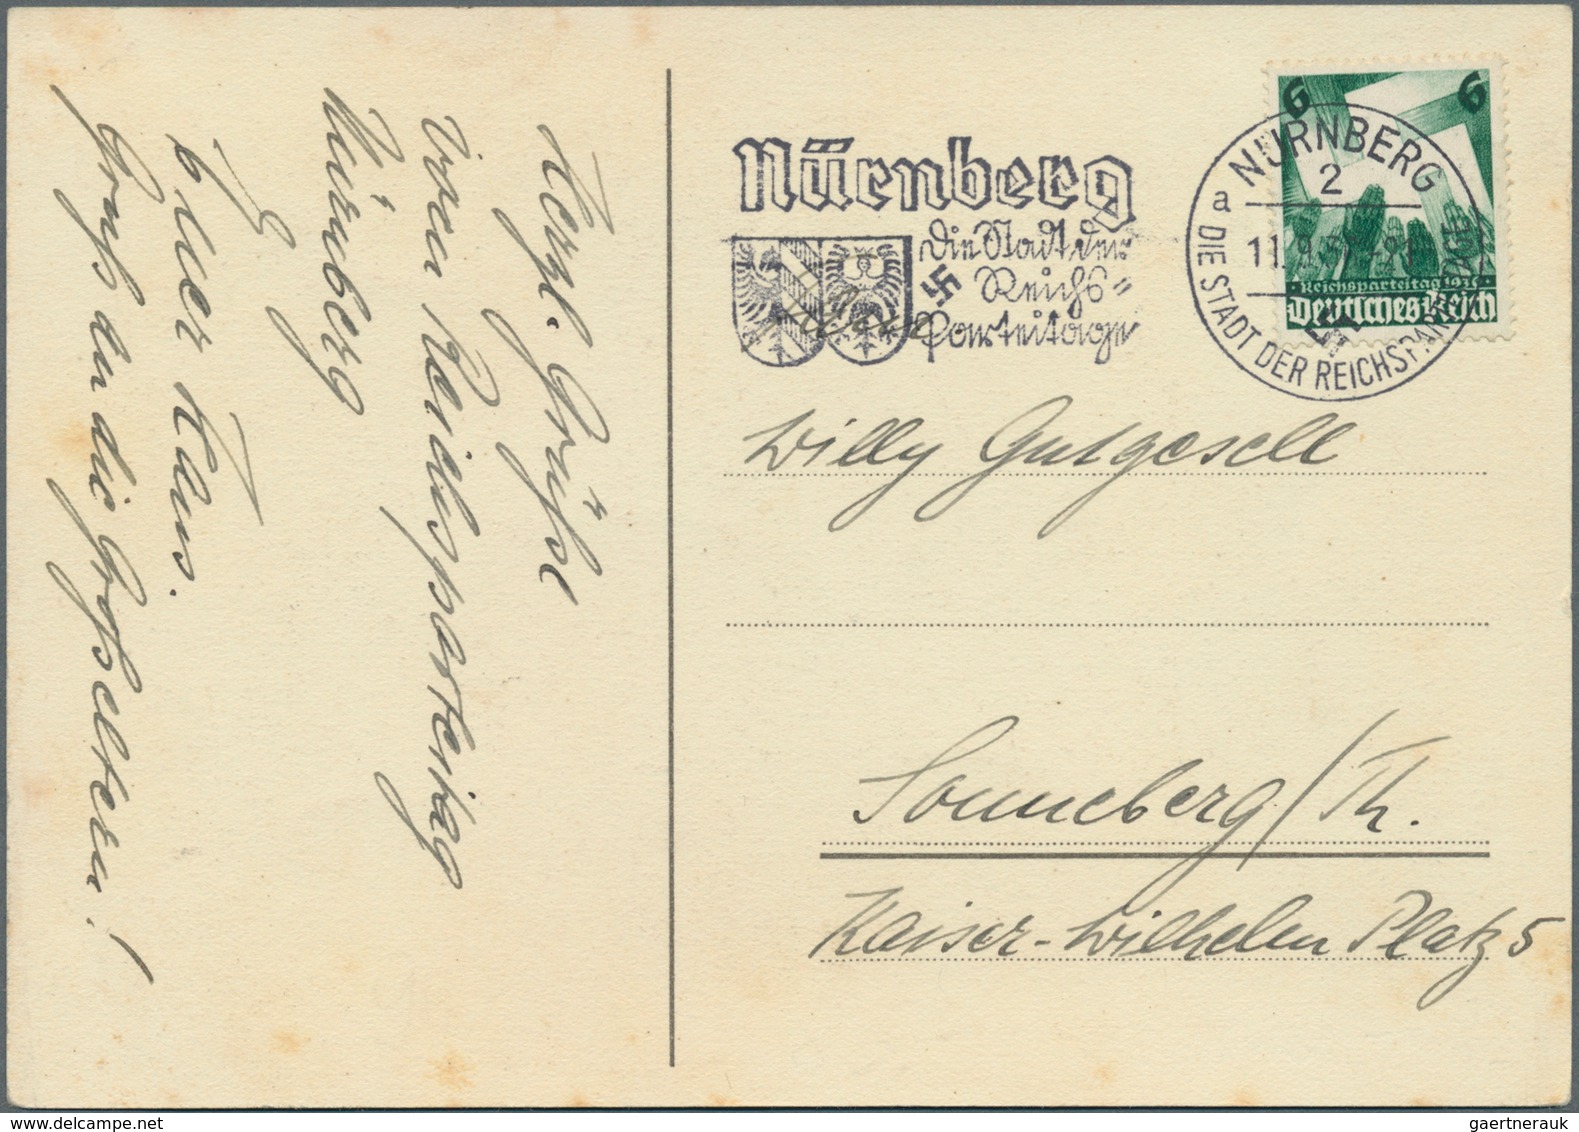 Herzl. Grüße
vom Reichsparteitag
Nürnberg
Euer Hans.
Gruß an die Großeltern!
Nürnberg
die Stadt der
Reichs=
Parteitage
NÜRNBERG
2
a
11.9.
DIE STADT DER REICHSPARTEITAGE
6 6
Reichsparteitag 1936
Deutsches Reich
Willy Gutgesell
Sonneberg/Th.
Kaiser-Wilhelm Platz 5
gaertnerauk@yahoo.com